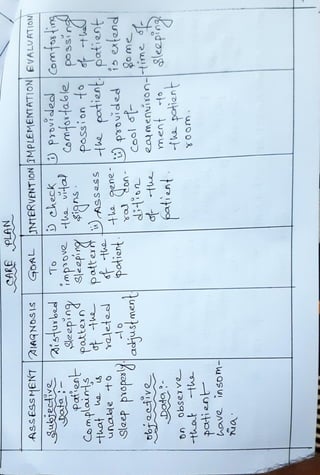 CARE PLAN
ASSESSMENT
Subjective
Data:-
patient
Complaints
that he is
unable to
Sleep properly.
objective
Data:-
on observe
that the
patient
have insom-
nia.
DIAGNOSIS
Disturbed
Sleeping
pattern
of the
releted
to
adjustment
GOAL
To
improve
sleeping
pattern
of the
patient.
INTERVENTION
i) check
the vital
signs.
ii) Assess
the gene-
ral con-
dition
of the
patient.
IMPLEMENTATION
i) provided
comfortable
possion to
the patient.
ii) provided
cool of-
earmenviron-
ment to
the patient
room.
EVALUATION
Comforting
possing
of the
patient
is extend
some
time of
sleeping